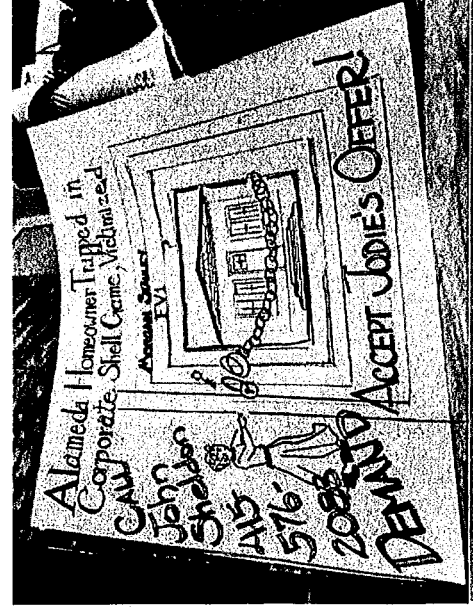 Alameda Homeowner Tripped in
Corporate Shell Game, Victimized
CALL
John
Sheldon
415
576-
2088
MORGAN STANLEY
EV1
DEMAND ACCEPT JODIE'S OFFER!